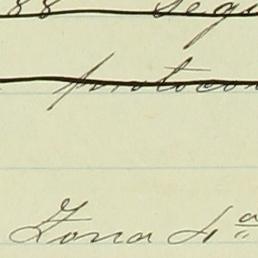 88 segu
protocol
Zona 4ª